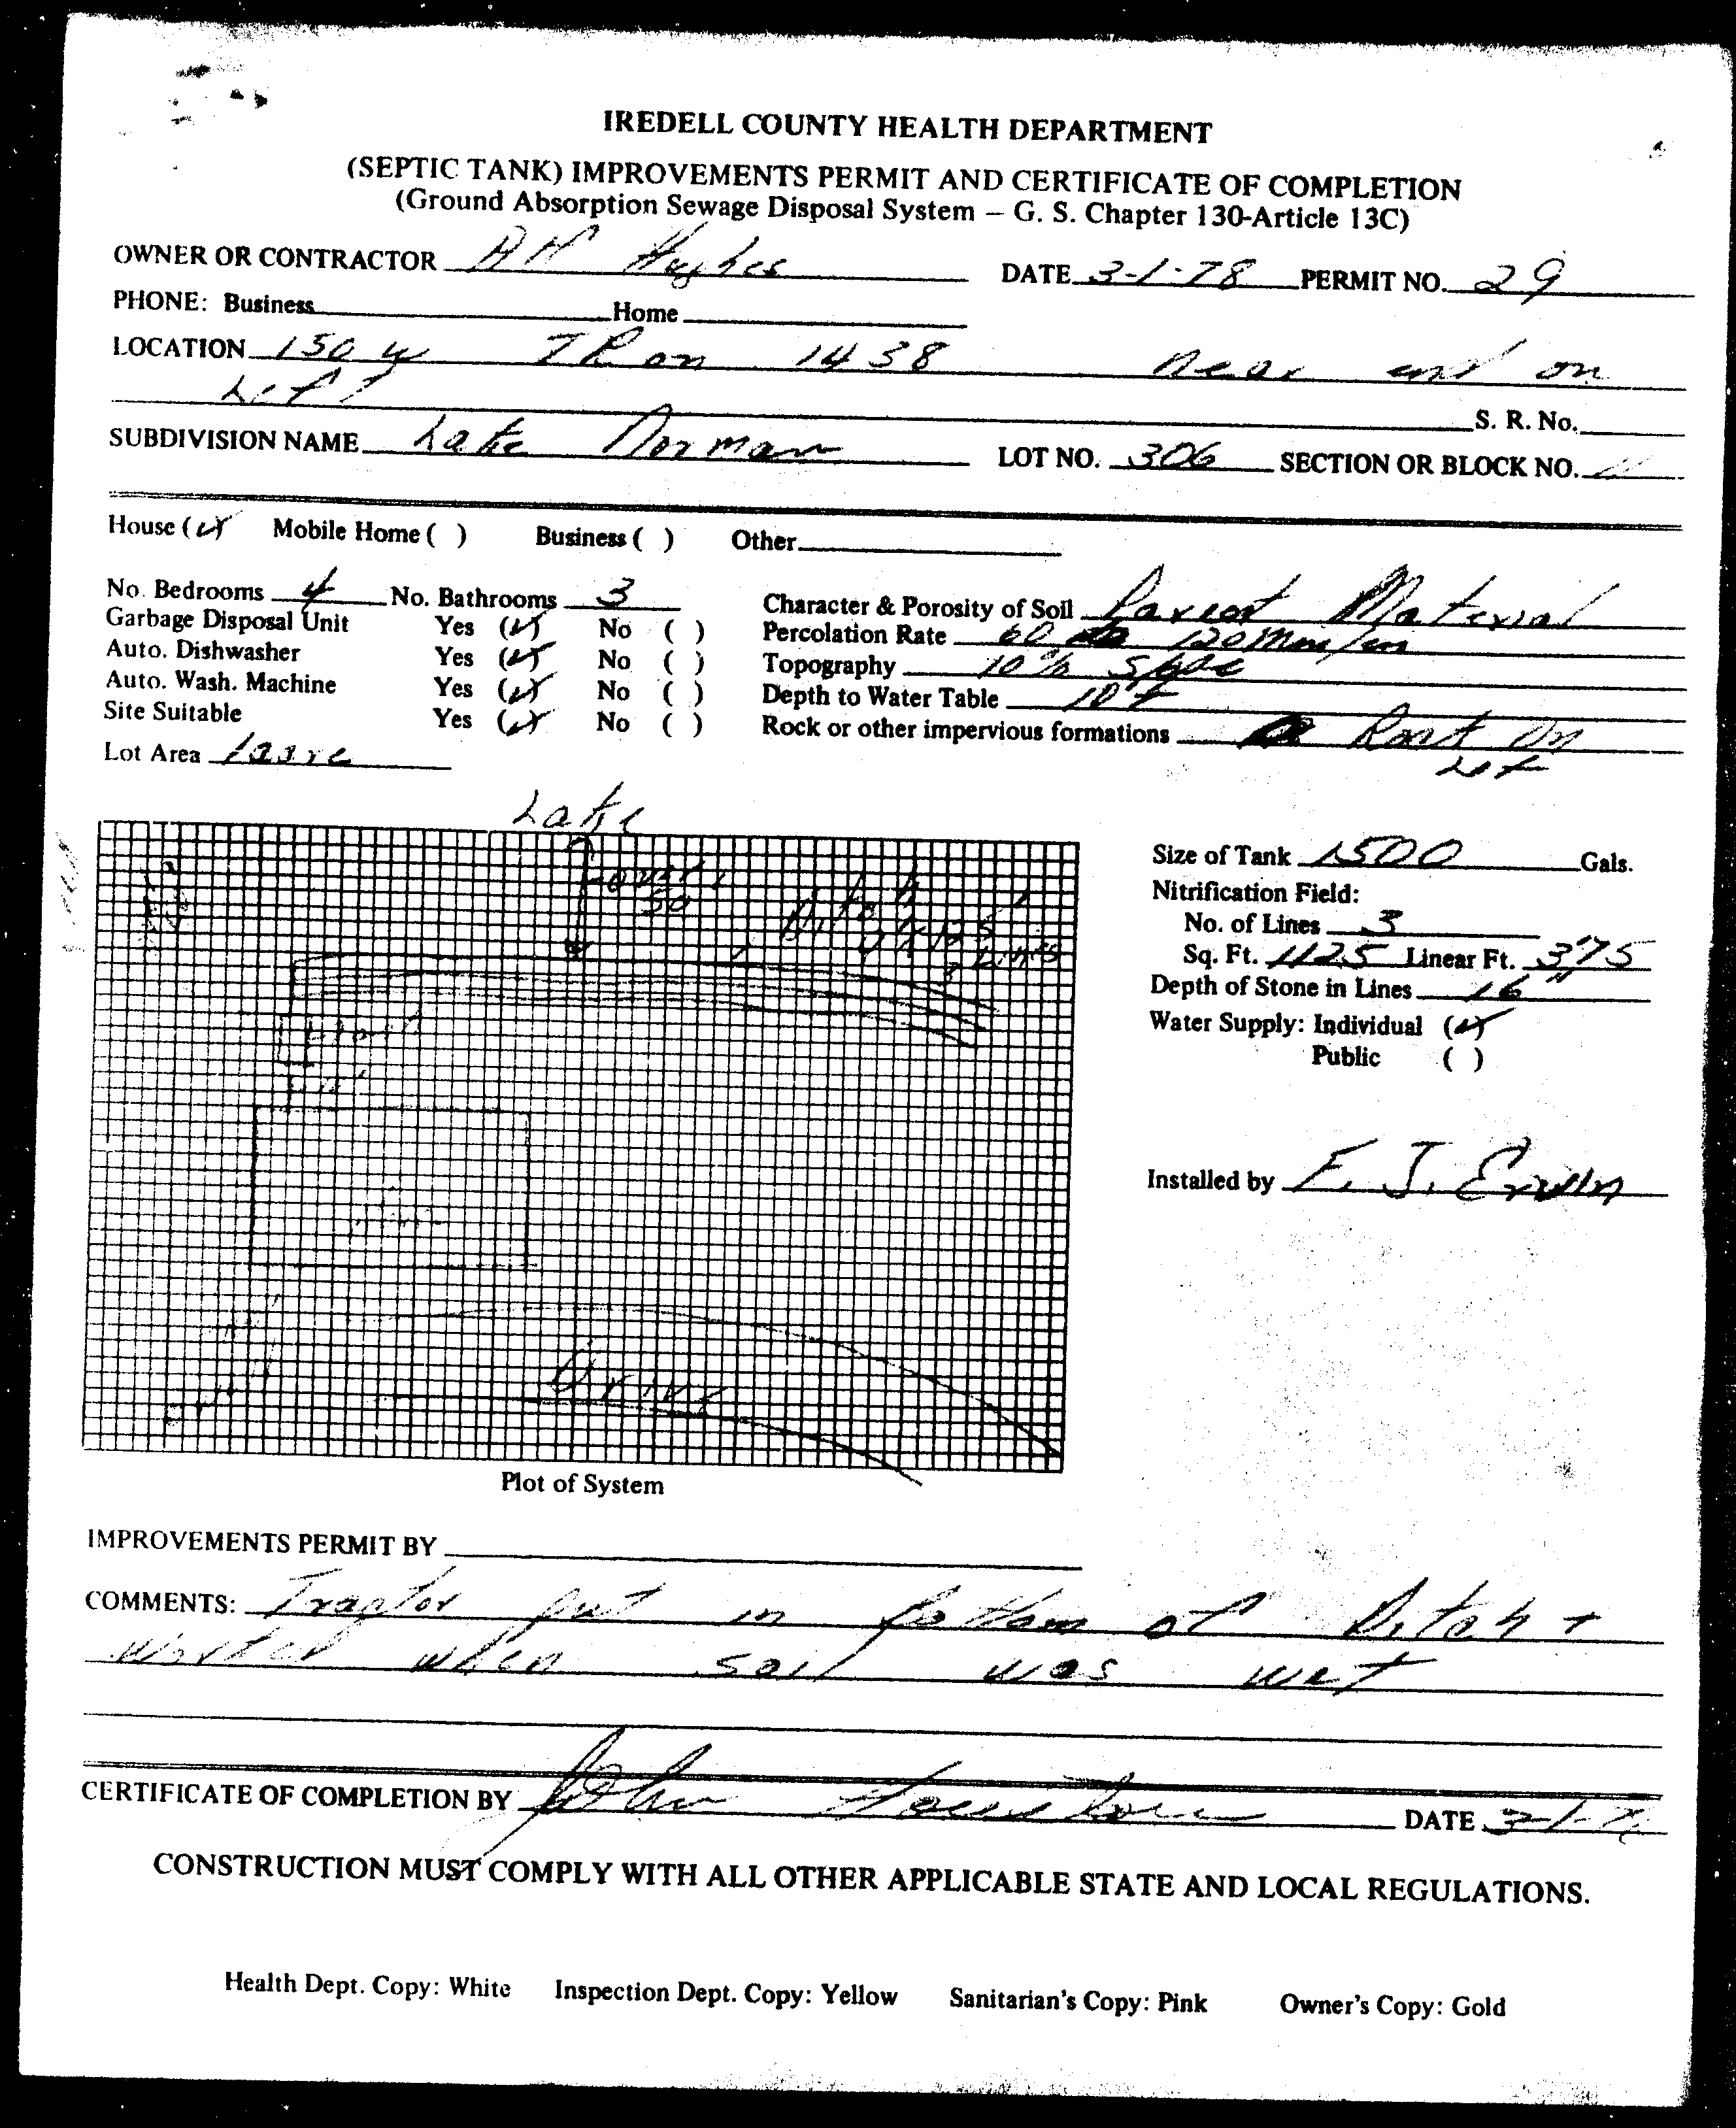 IREDELL COUNTY HEALTH DEPARTMENT
(SEPTIC TANK) IMPROVEMENTS PERMIT AND CERTIFICATE OF COMPLETION
(Ground Absorption Sewage Disposal System – G. S. Chapter 130-Article 13C)
OWNER OR CONTRACTOR Hughes DATE 3-1-78 PERMIT NO. 29
PHONE: Business Home
LOCATION 150 W TR on 1438 near end on
Left S. R. No.
SUBDIVISION NAME Lake Norman LOT NO. 306 SECTION OR BLOCK NO.
House (✓) Mobile Home ( ) Business ( ) Other
No. Bedrooms 4 No. Bathrooms 3
Garbage Disposal Unit Yes (✓) No ( )
Auto. Dishwasher Yes (✓) No ( )
Auto. Wash. Machine Yes (✓) No ( )
Site Suitable Yes (✓) No ( )
Lot Area
Character & Porosity of Soil Parent Material
Percolation Rate 60 120 Min/in
Topography 10% Slope
Depth to Water Table 10'+
Rock or other impervious formations On
Lot
Lake
over
50'
Ditch
3'x125'
3 Lines
Drive
Plot of System
Size of Tank 1500 Gals.
Nitrification Field:
No. of Lines 3
Sq. Ft. 1125 Linear Ft. 375
Depth of Stone in Lines 16"
Water Supply: Individual (✓)
Public ( )
Installed by F. J. Ervin
IMPROVEMENTS PERMIT BY
COMMENTS: Tractor put in bottom of Ditch +
worked when soil was wet
CERTIFICATE OF COMPLETION BY John DATE 3-1-78
CONSTRUCTION MUST COMPLY WITH ALL OTHER APPLICABLE STATE AND LOCAL REGULATIONS.
Health Dept. Copy: White Inspection Dept. Copy: Yellow Sanitarian's Copy: Pink Owner's Copy: Gold